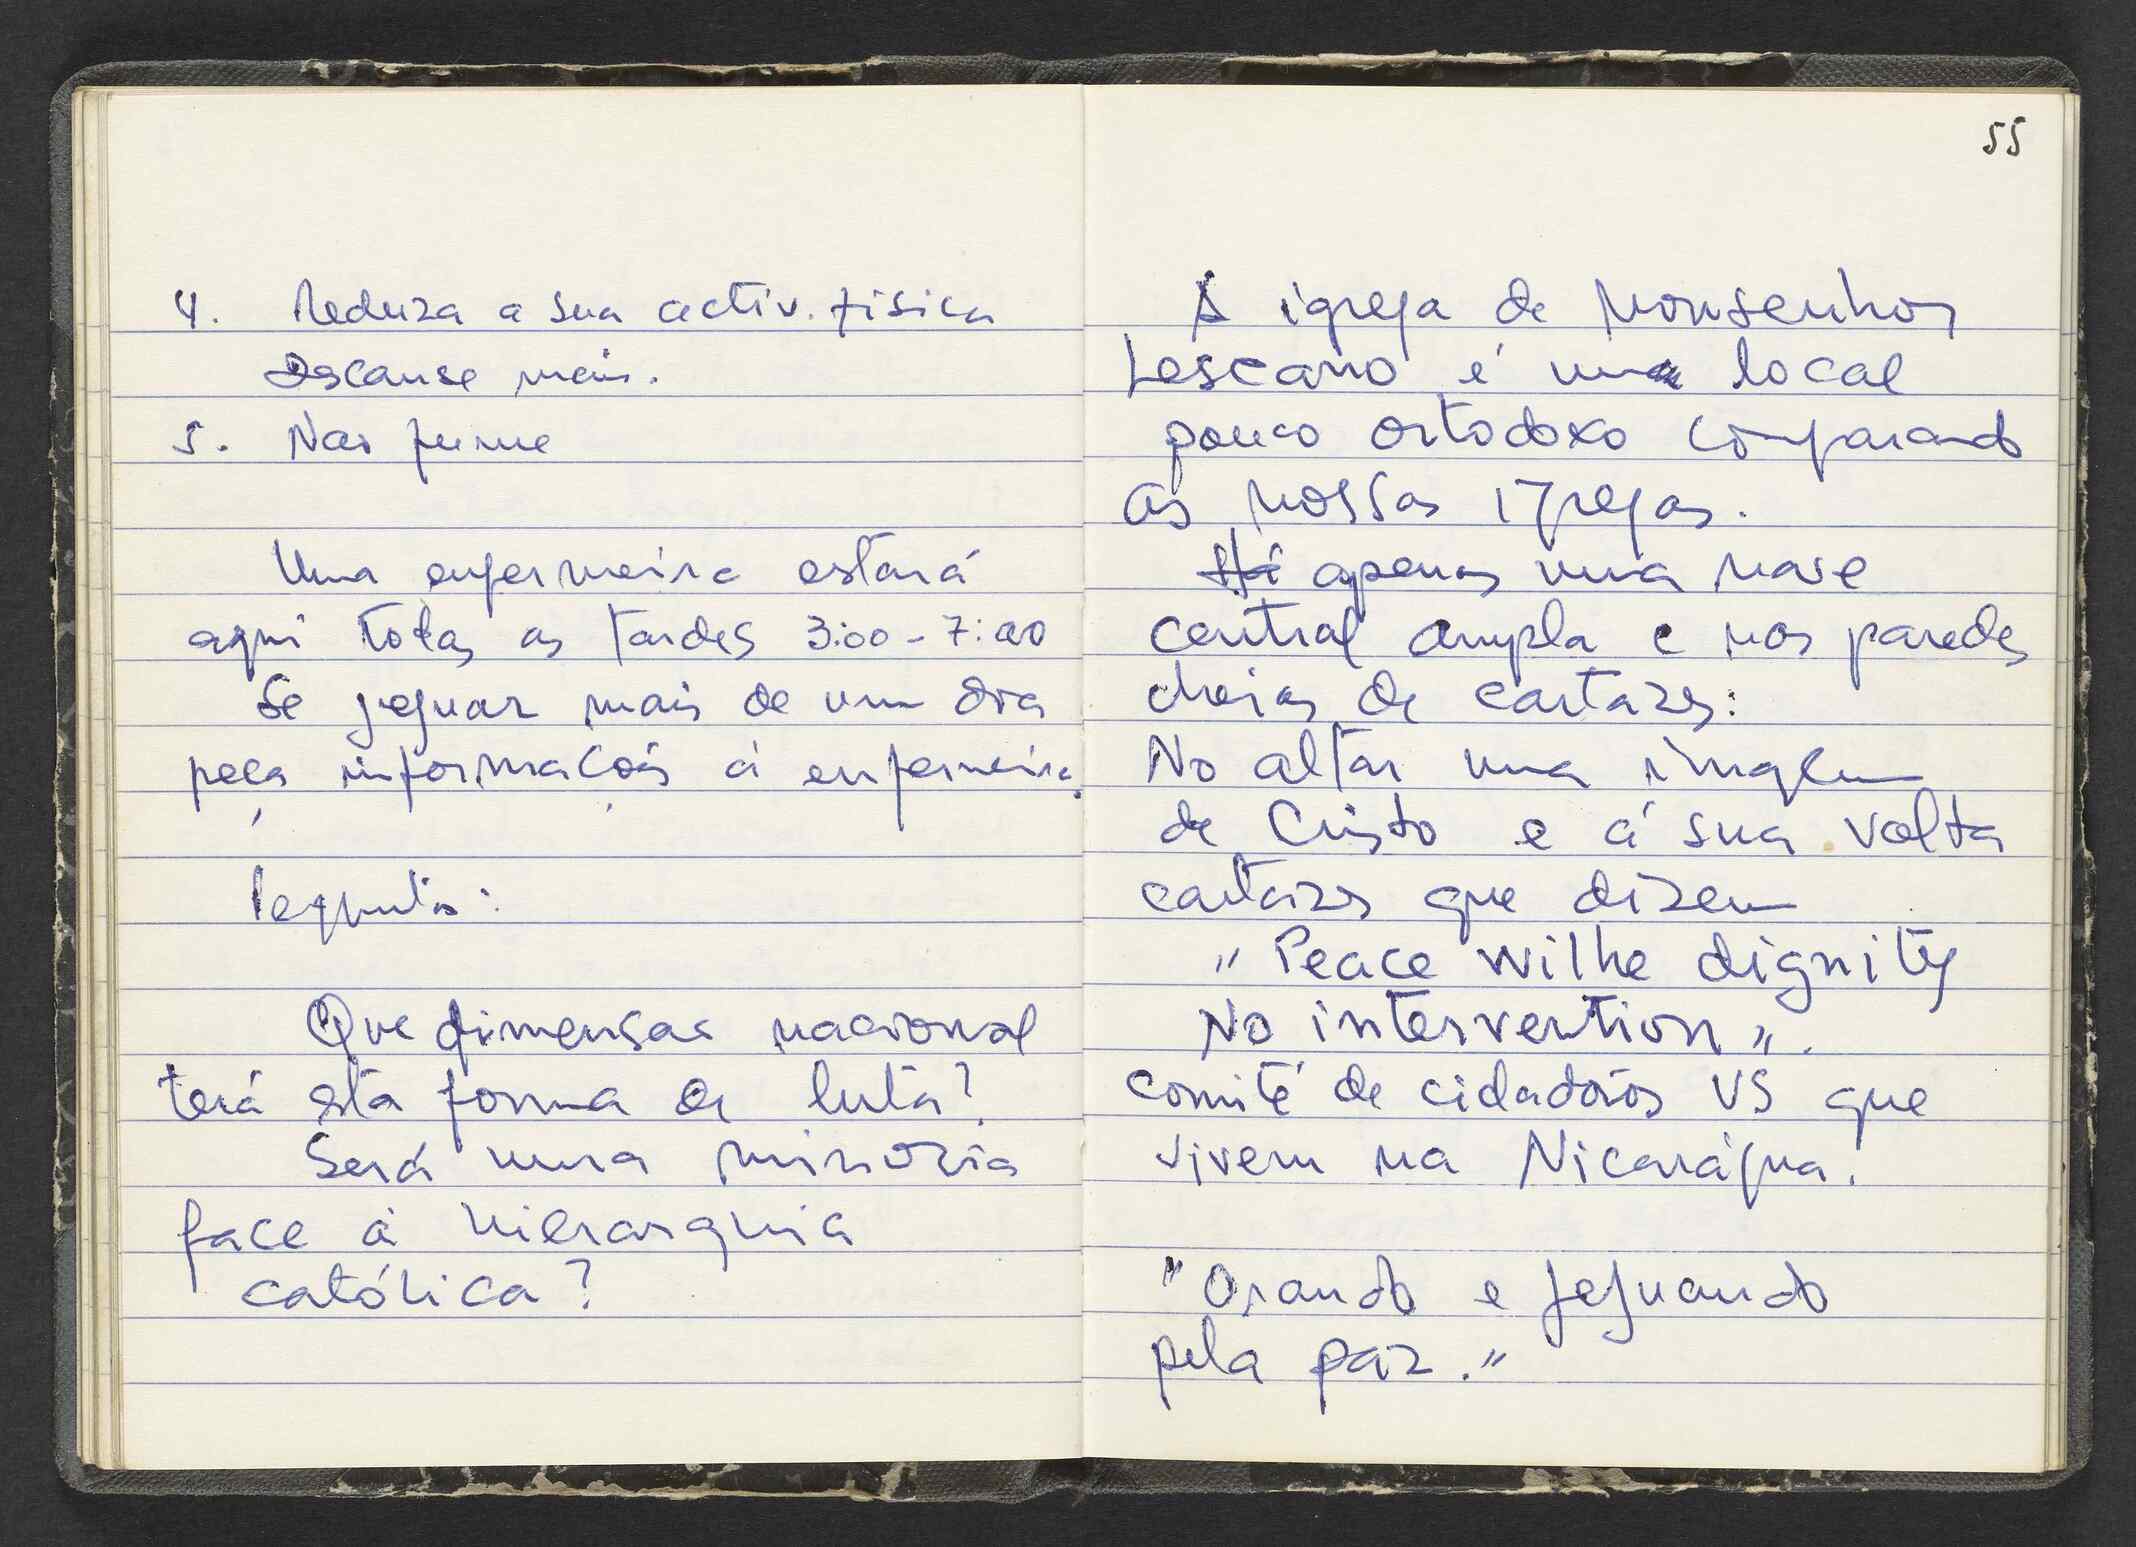 4. Reduza a sua activ. fisica
Descanse mais.
5. Nao fume
Uma enfermeira estará
aqui todas as tardes 3:00 - 7:00
Se jejuar mais de um dia
peça informações á enfermeira.
Pergunta:
Que dimensao nacional
terá esta forma de luta?
Será uma minoria
face á hierarquia
católica?
55
A igreja de Monsenhor
Lescano é um local
pouco ortodoxo comparando
as nossas igrejas.
Há apenas uma nave
central ampla e nas paredes
cheias de cartazes:
No altar uma imagem
de Cristo e á sua volta
cartazes que dizem
"Peace withe dignity
No intervention".
comité de cidadãos US que
vivem na Nicarágua.
"Orando e jejuando
pela paz."